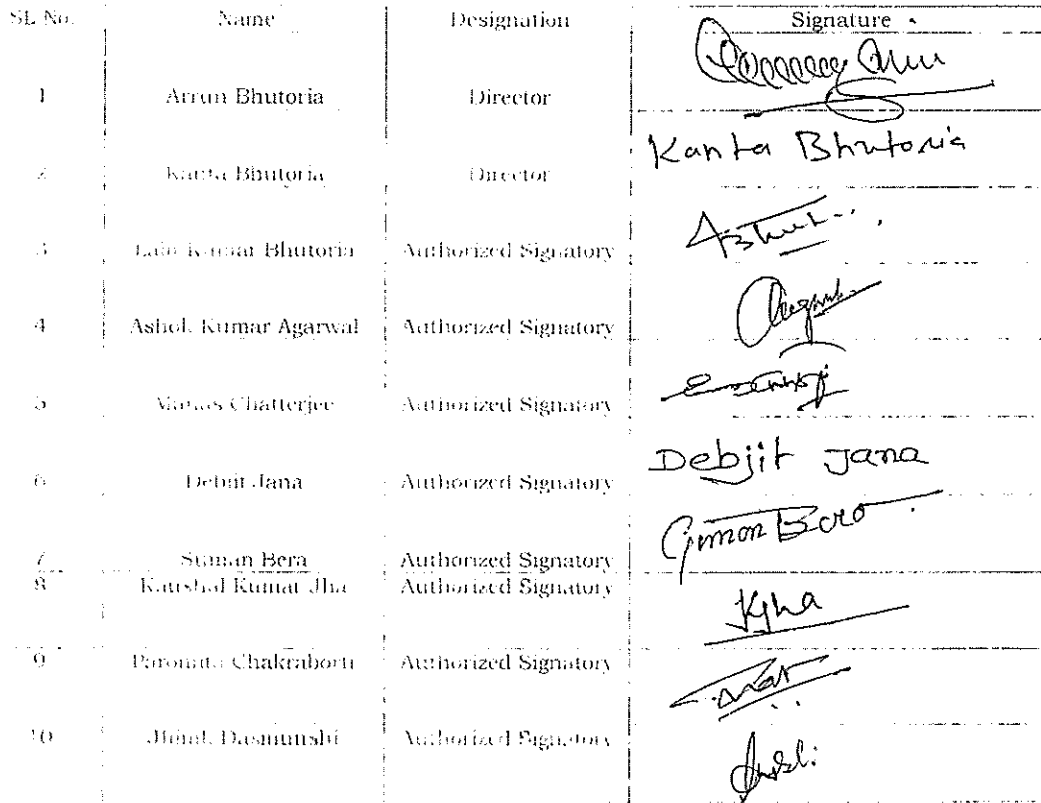 SL No. Name Designation Signature
1 Arrun Bhutoria Director
Kanta Bhutoria
2 Kanta Bhutoria Director
3 Kumar Bhutoria Authorized Signatory
4 Ashok Kumar Agarwal Authorized Signatory
5 Manas Chatterjee Authorized Signatory
Debjit Jana
6 Debjit Jana Authorized Signatory
7 Suman Bera Authorized Signatory
8 Kaushal Kumar Jha Authorized Signatory
KJha
9 Chakraborti Authorized Signatory
10 Dasmunshi Authorized Signatory